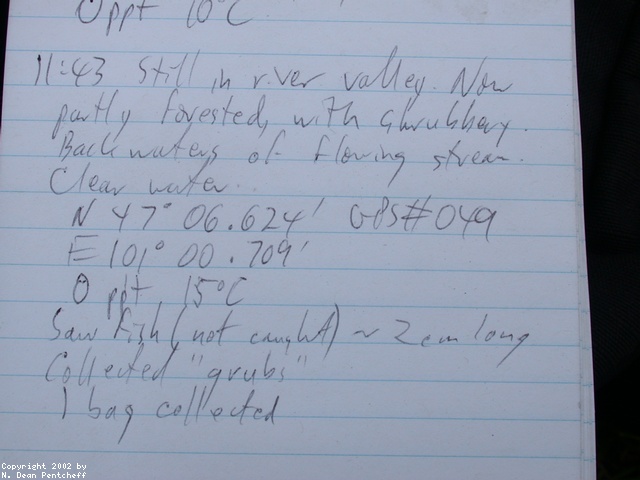 0 ppt 10°C
11:43 Still in river valley. Now
partly forested, with shrubbery.
Backwaters of flowing stream.
Clear water.
N 47° 06.624' GPS#049
E 101° 00.709'
0 ppt 15°C
Saw fish (not caught) ~ 2cm long
Collected "grubs"
1 bag collected
Copyright 2002 by
N. Dean Pentcheff